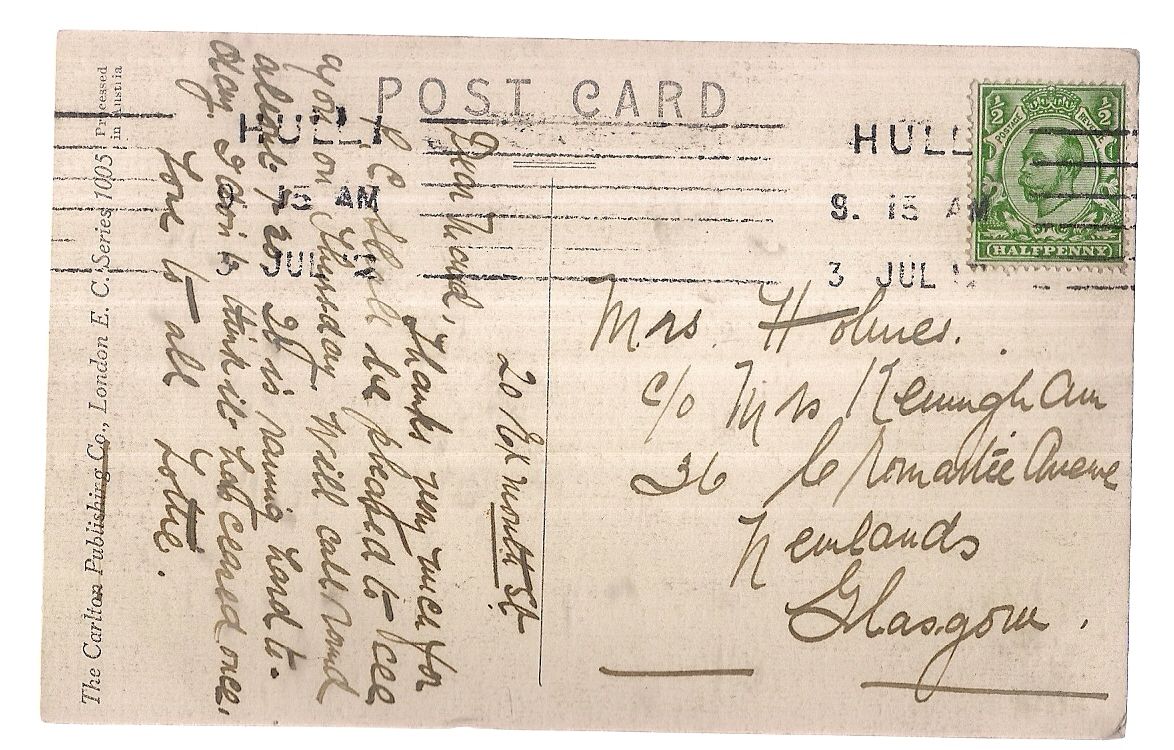 POST CARD
HULL
8. 15 AM
3 JUL
HULL
15 AM
JUL
½ ½
POSTAGE
HALFPENNY
20 Exmouth St.
Dear
Thanks very much for
P.C. shall be pleased to see
you on Thursday, will call round
about 7.20. It is raining hard to-
day. I don't think it has ceased once,
Love to all
Lottie.
Mrs Holmes.
c/o Mrs Keningham
36 Cromartie Avenue
Newlands
Glasgow.
The Carlton Publishing Co., London E. C. Series 1005
Processed
in Austria